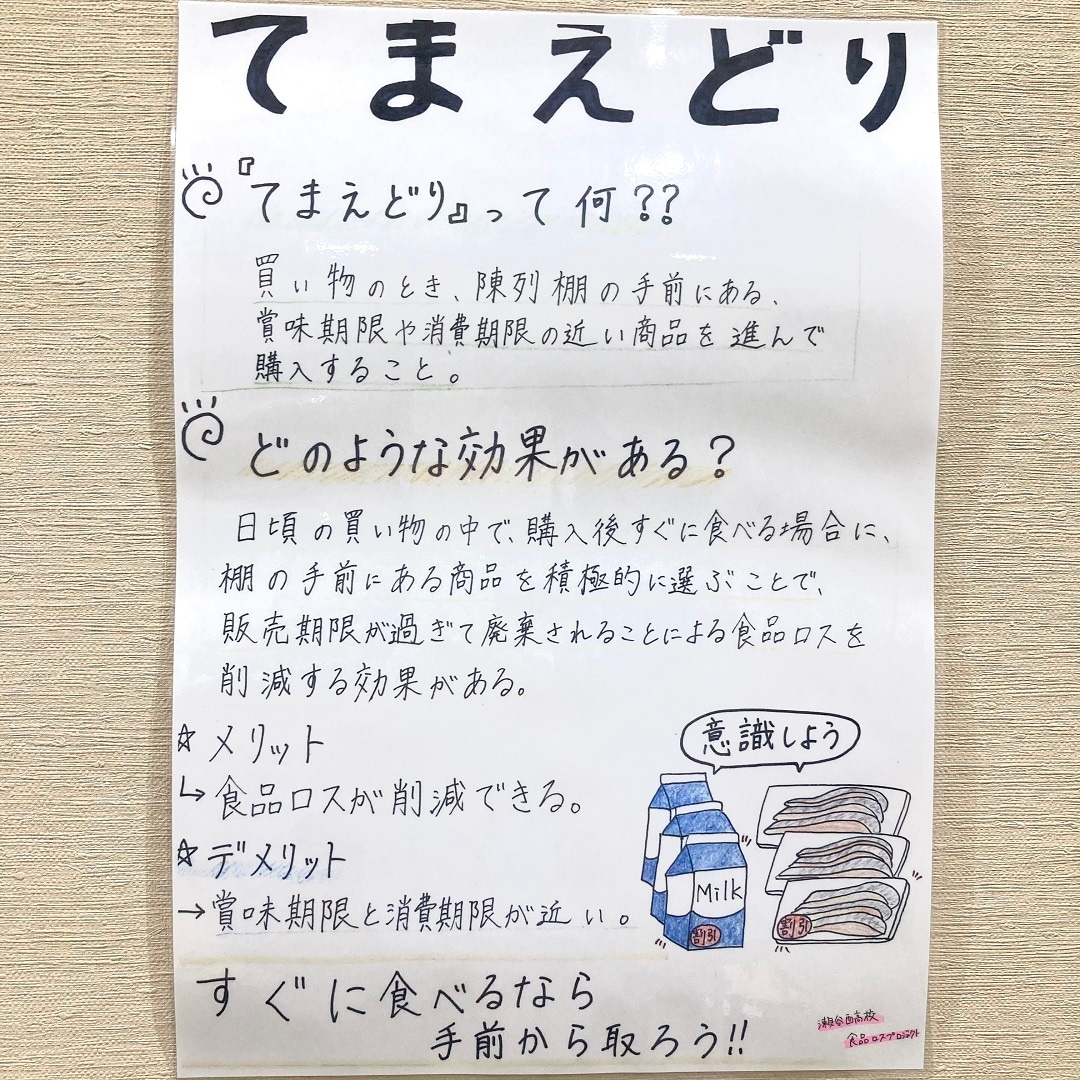 てまえどり
『てまえどり』って何??
買い物のとき、陳列棚の手前にある、
賞味期限や消費期限の近い商品を進んで
購入すること。
どのような効果がある?
日頃の買い物の中で、購入後すぐに食べる場合に、
棚の手前にある商品を積極的に選ぶことで、
販売期限が過ぎて廃棄されることによる食品ロスを
削減する効果がある。
☆メリット
↳食品ロスが削減できる。
☆デメリット
→賞味期限と消費期限が近い。
意識しよう
Milk
割引
割引
すぐに食べるなら
手前から取ろう!!
瀬谷西高校
食品ロスプロジェクト